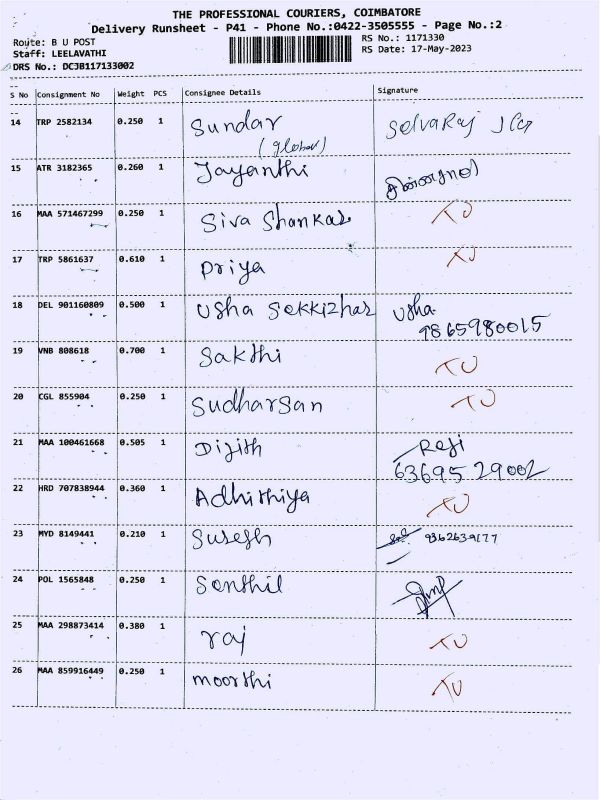 THE PROFESSIONAL COURIERS, COIMBATORE
Delivery Runsheet - P41 - Phone No.:0422-3505555 - Page No.:2
Route: B U POST
RS No.: 1171330
Staff: LEELAVATHI
RS Date: 17-May-2023
DRS No.: DCJB117133002
S No Consignment No Weight PCS Consignee Details Signature
14 TRP 2582134 0.250 1 Sundar Selvaraj
(global)
15 ATR 3182365 0.260 1 Jayanthi
16 MAA 571467299 0.250 1 Siva Shankar TU
17 TRP 5861637 0.610 1 priya TU
18 DEL 901160809 0.500 1 Usha Sekkizhar Usha
9865980015
19 VNB 808618 0.700 1 Sakthi TU
20 CGL 855904 0.250 1 Sudharsan TU
21 MAA 100461668 0.505 1 Dijith Raji
63695 29002
22 HRD 707838944 0.360 1 Adhithiya TU
23 MYD 8149441 0.210 1 Suresh 9362639177
24 POL 1565848 0.250 1 Senthil
25 MAA 298873414 0.380 1 raj TU
26 MAA 859916449 0.250 1 moorthi TU